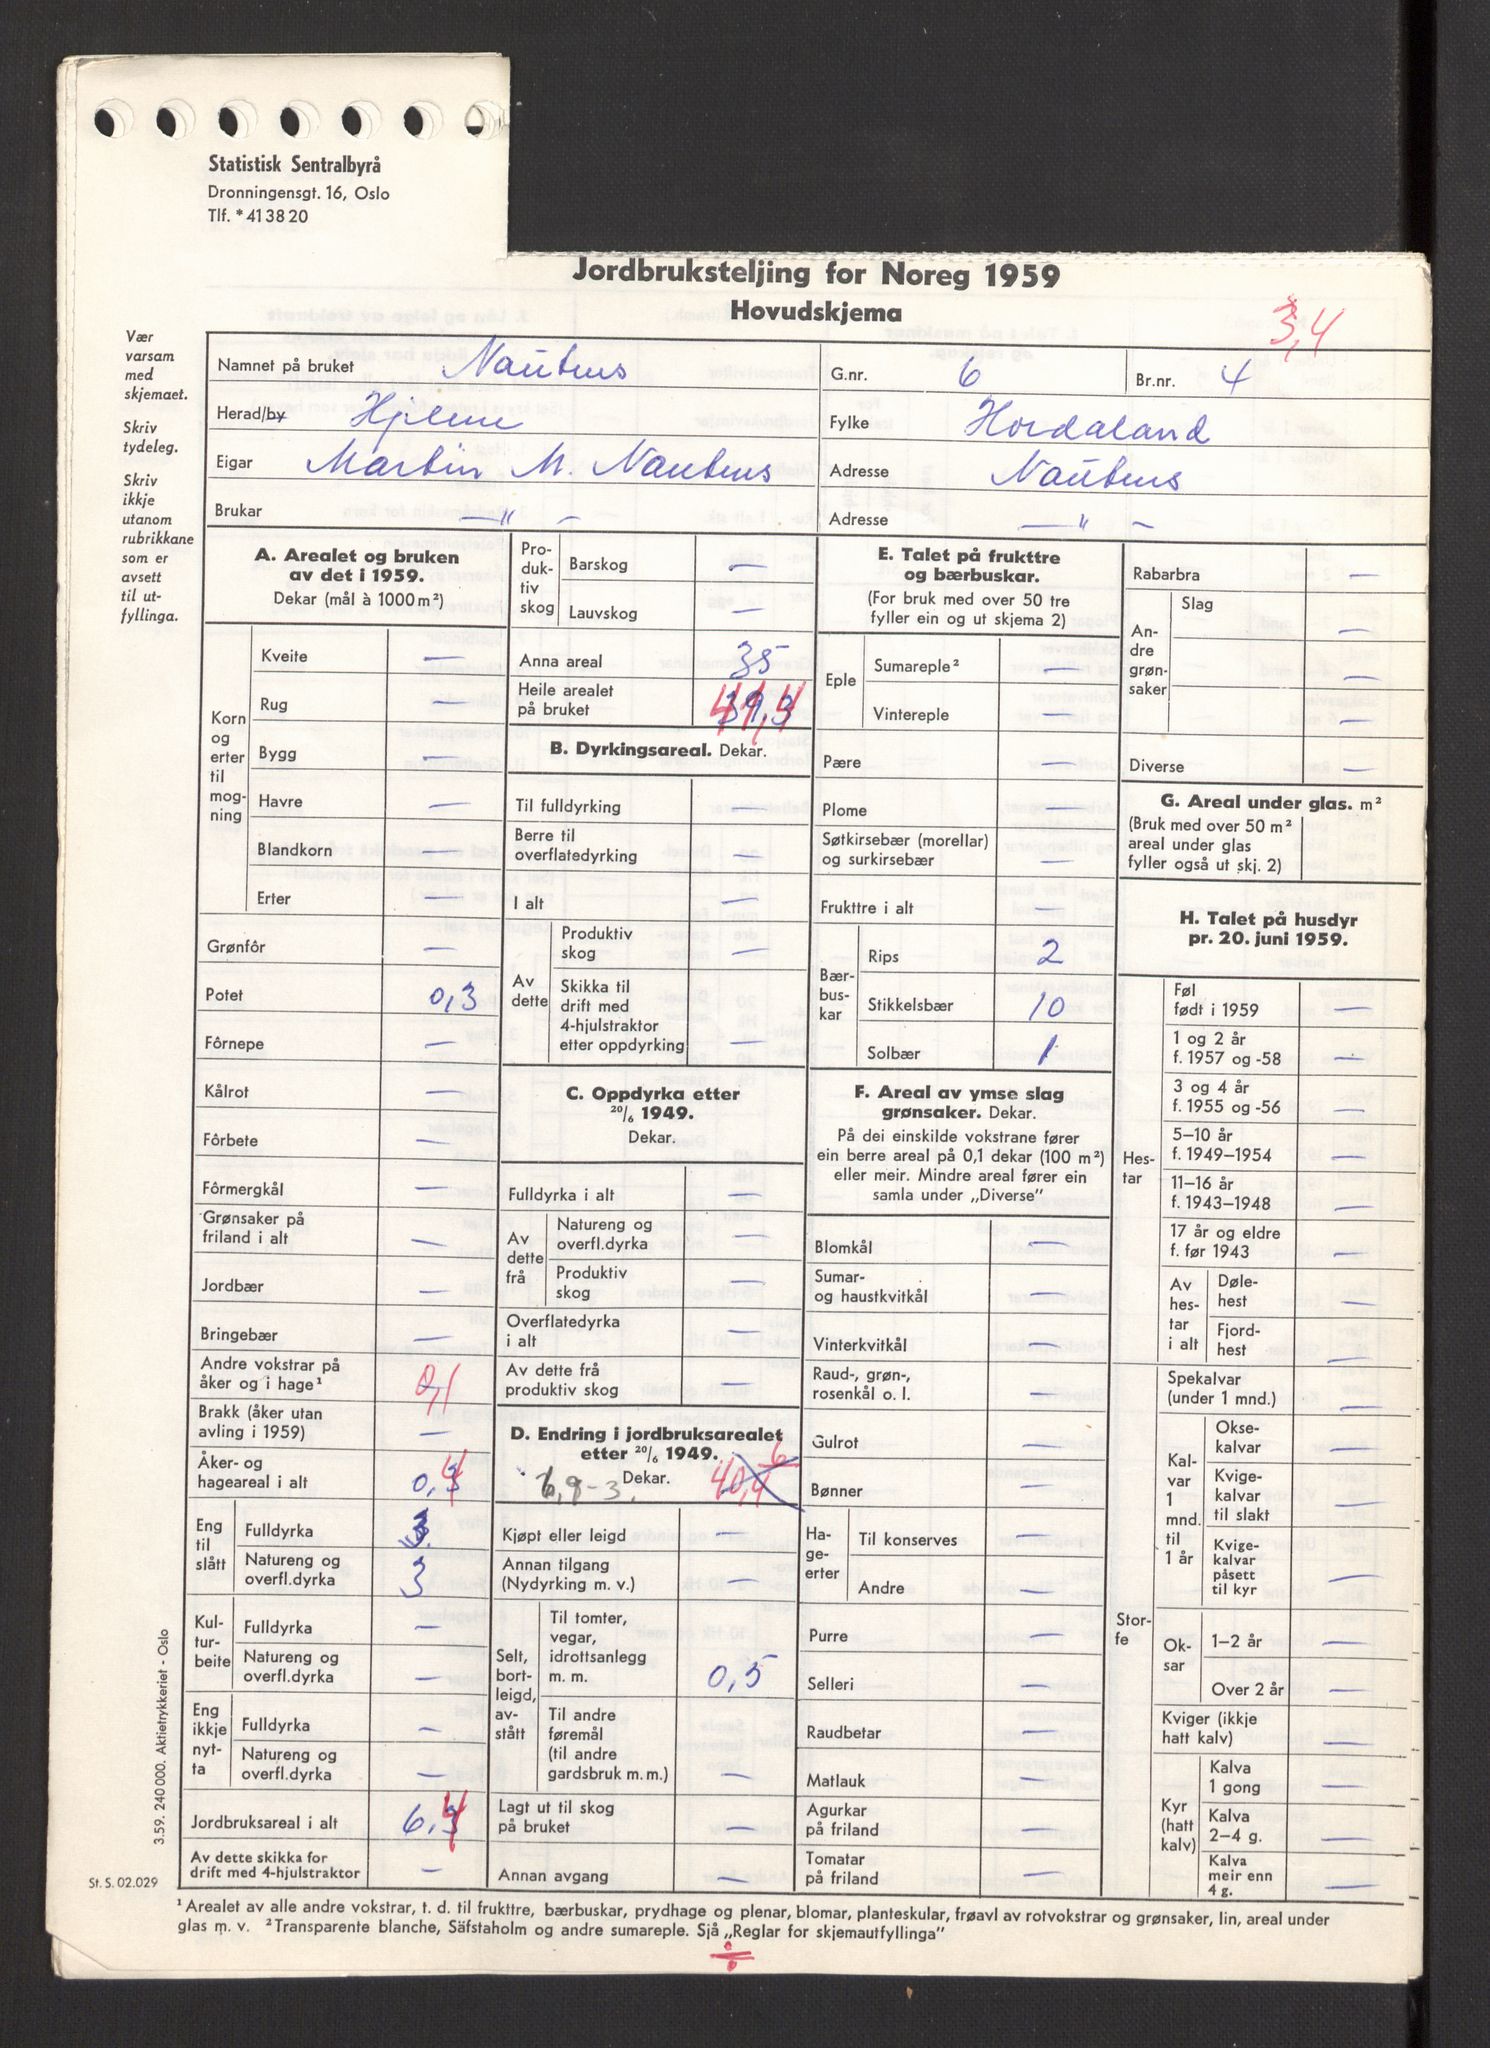 Statistisk Sentralbyrå
Dronningensgt. 16, Oslo
Tlf. *41 38 20
Jordbruksteljing for Noreg 1959
Hovudskjema
3,4
Vær
varsam
med
skjemaet.
Skriv
tydeleg.
Skriv
ikkje
utanom
rubrikkane
som er
avsett
til ut-
fyllinga.
Namnet på bruket Nautnes G.nr. 6 Br.nr. 4
Herad/by Hjelme Fylke Hordaland
Eigar Martin M. Nautnes Adresse Nautnes
Brukar —"— Adresse —"—
A. Arealet og bruken
av det i 1959.
Dekar (mål à 1000 m²)
Korn og erter til mog-ning
Kveite —
Rug —
Bygg —
Havre —
Blandkorn —
Erter —
Grønfôr —
Potet 0,3
Fôrnepe —
Kålrot —
Fôrbete —
Fôrmergkål —
Grønsaker på
friland i alt —
Jordbær —
Bringebær —
Andre vokstrar på
åker og i hage¹ 0,1
Brakk (åker utan
avling i 1959) —
Åker- og
hageareal i alt 0,4
Eng til slått
Fulldyrka 3
Natureng og
overfl.dyrka 3
Kul-tur-beite
Fulldyrka —
Natureng og
overfl.dyrka —
Eng ikkje nyt-ta
Fulldyrka —
Natureng og
overfl.dyrka —
Jordbruksareal i alt 6,4
Av dette skikka for
drift med 4-hjulstraktor —
Pro-duk-tiv skog
Barskog —
Lauvskog —
Anna areal 35
Heile arealet
på bruket 39,3 41,4
B. Dyrkingsareal. Dekar.
Til fulldyrking —
Berre til
overflatedyrking —
I alt —
Av dette
Produktiv
skog —
Skikka til
drift med
4-hjulstraktor
etter oppdyrking —
C. Oppdyrka etter
20/6 1949.
Dekar.
Fulldyrka i alt —
Av dette frå
Natureng og
overfl.dyrka —
Produktiv
skog —
Overflatedyrka
i alt —
Av dette frå
produktiv skog —
D. Endring i jordbruksarealet
etter 20/6 1949.
Dekar.
6,9-3.
Kjøpt eller leigd —
Annan tilgang
(Nydyrking m. v.) —
Selt, bort-leigd, av-stått
Til tomter,
vegar,
idrottsanlegg
m. m. 0,5
Til andre
føremål
(til andre
gardsbruk m. m.) —
Lagt ut til skog
på bruket —
Annan avgang —
E. Talet på frukttre
og bærbuskar.
(For bruk med over 50 tre
fyller ein og ut skjema 2)
Eple
Sumareple² —
Vintereple —
Pære —
Plome —
Søtkirsebær (morellar)
og surkirsebær —
Frukttre i alt —
Bær-bus-kar
Rips 2
Stikkelsbær 10
Solbær 1
F. Areal av ymse slag
grønsaker. Dekar.
På dei einskilde vokstrane fører
ein berre areal på 0,1 dekar (100 m²)
eller meir. Mindre areal fører ein
samla under „Diverse”
Blomkål —
Sumar-
og haustkvitkål —
Vinterkvitkål —
Raud-, grøn-,
rosenkål o. l. —
Gulrot —
Bønner —
Ha-ge-erter
Til konserves —
Andre —
Purre —
Selleri —
Raudbetar —
Matlauk —
Agurkar
på friland —
Tomatar
på friland —
Rabarbra —
An-dre grøn-saker
Slag
—
—
—
Diverse —
G. Areal under glas. m²
(Bruk med over 50 m²
areal under glas
fyller også ut skj. 2)
H. Talet på husdyr
pr. 20. juni 1959.
Hes-tar
Føl
født i 1959 —
1 og 2 år
f. 1957 og -58 —
3 og 4 år
f. 1955 og -56 —
5–10 år
f. 1949–1954 —
11–16 år
f. 1943–1948 —
17 år og eldre
f. før 1943 —
Av hes-tar i alt
Døle-
hest —
Fjord-
hest —
Stor-fe
Spekalvar
(under 1 mnd.) —
Kal-var 1 mnd. til 1 år
Okse-
kalvar —
Kvige-
kalvar
til slakt —
Kvige-
kalvar
påsett
til kyr —
Ok-sar
1–2 år —
Over 2 år —
Kviger (ikkje
hatt kalv) —
Kyr (hatt kalv)
Kalva
1 gong —
Kalva
2–4 g. —
Kalva
meir enn
4 g. —
3.59. 240 000. Aktietrykkeriet - Oslo
St. S. 02.029
¹ Arealet av alle andre vokstrar, t. d. til frukttre, bærbuskar, prydhage og plenar, blomar, planteskular, frøavl av rotvokstrar og grønsaker, lin, areal under
glas m. v. ² Transparente blanche, Säfstaholm og andre sumareple. Sjå „Reglar for skjemautfyllinga”